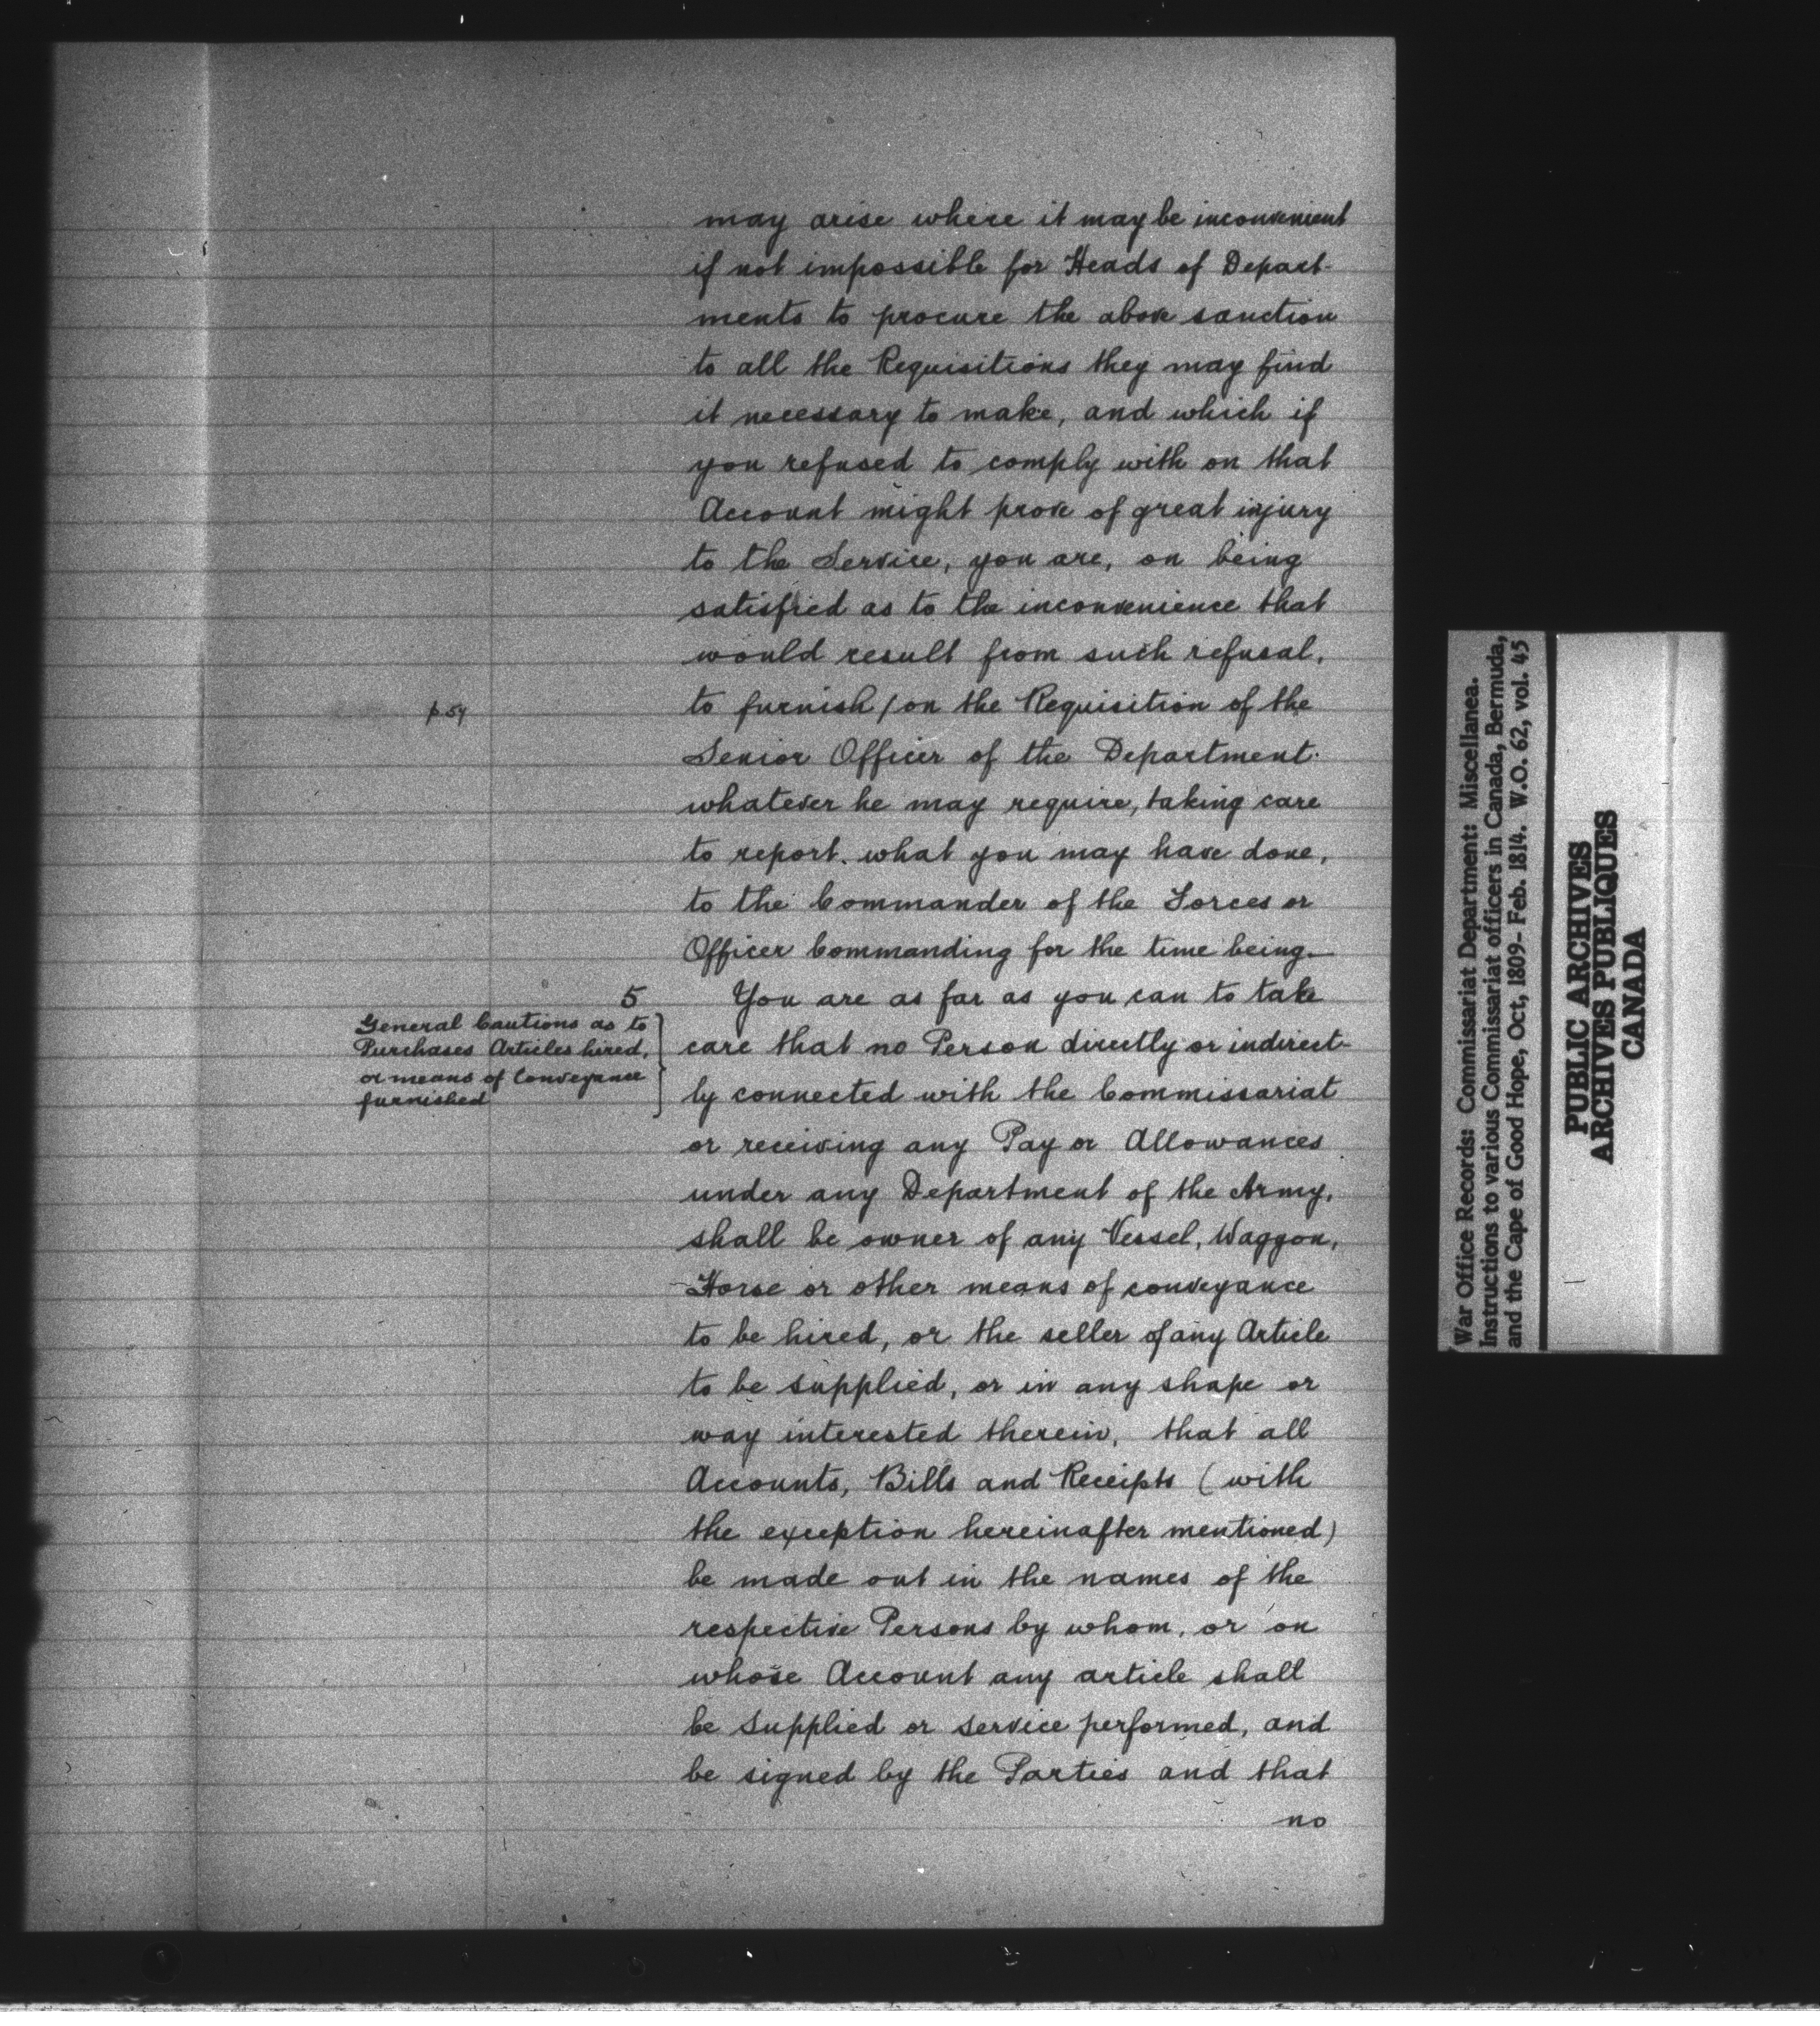 may arise where it may be inconvenient
if not impossible for Heads of Depart-
ments to procure the above sanction
to all the Requisitions they may find
it necessary to make, and which if
you refused to comply with on that
Account might prove of great injury
to the Service, you are, on being
satisfied as to the inconvenience that
would result from such refusal,
p 54
to furnish / on the Requisition of the
Senior Officer of the Department.
whatever he may require, taking care
to report. what you may have done,
to the Commander of the Forces or
Officer Commanding for the time being.—
5
General Cautions as to
Purchases Articles hired,
or means of Conveyance
furnished
You are as far as you can to take
care that no Person directly or indirect-
ly connected with the Commissariat
or receiving any Pay or Allowances
under any Department of the Army,
shall be owner of any Vessel, Waggon,
Horse or other means of conveyance
to be hired, or the seller of any Article
to be supplied, or in any shape or
way interested therein, that all
Accounts, Bills and Receipts (with
the exception hereinafter mentioned)
be made out in the names of the
respective Persons by whom, or on
whose Account any article shall
be supplied or service performed, and
be signed by the Parties and that
no
War Office Records: Commissariat Department: Miscellanea.
Instructions to various Commissariat officers in Canada, Bermuda,
and the Cape of Good Hope, Oct, 1809- Feb. 1814. W.O. 62, vol. 45
PUBLIC ARCHIVES
ARCHIVES PUBLIQUES
CANADA